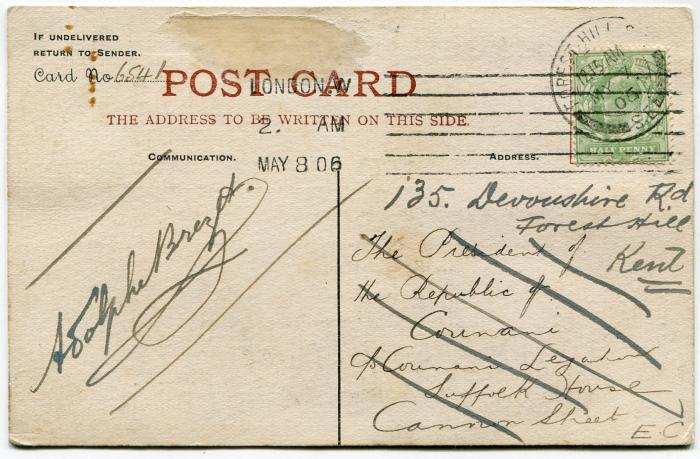 IF UNDELIVERED
RETURN TO SENDER.
Card No 6541
POST CARD
LONDON.W
THE ADDRESS TO BE WRITTEN ON THIS SIDE.
2. AM
MAY 8 06
COMMUNICATION.
ADDRESS.
FOREST HILL S.E.
12.15 AM
MY
HALF PENNY
135. Devonshire Rd
Forest Hill
Kent
The President of
the Republic of
Counani
c/o Counani Legation
Suffolk House
Cannon Street
E C
Adolphe Brezet.